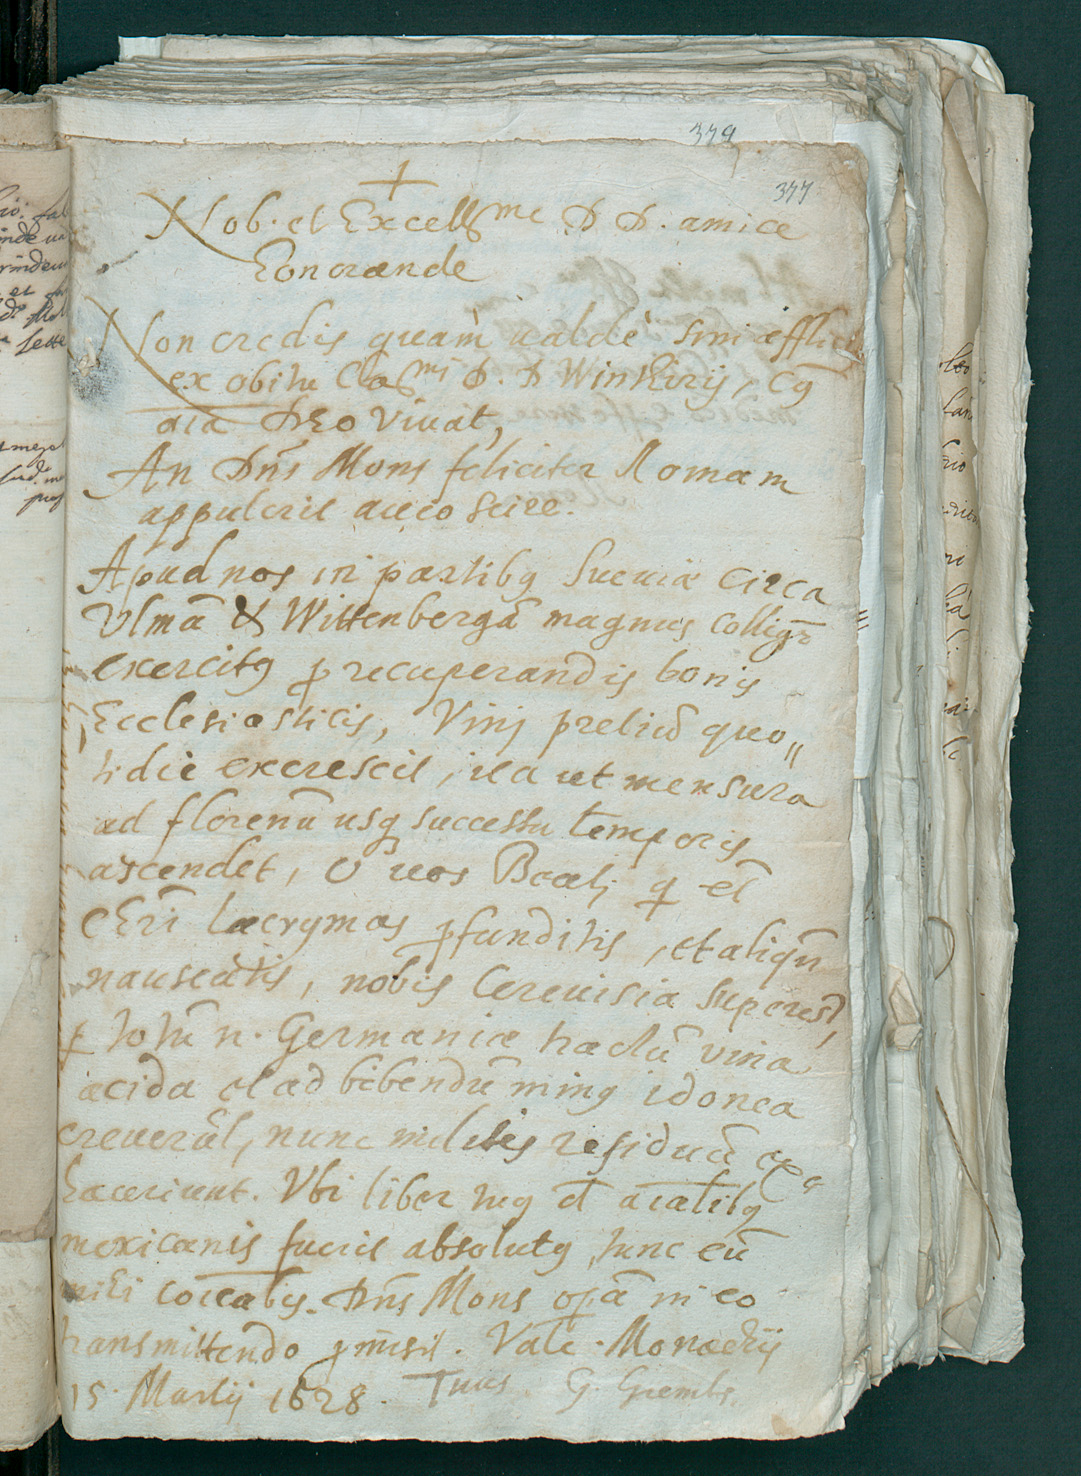 379
377
+
Nob. et Excell^me D D. amice
honorande
Non credis quam valde sim afflict
ex obitu Cla^mi D. D Winthirij, cuꝯ
aīa DEO vivat,
An Dn̄s Mons feliciter Romam
appulerit aueo scire.
Apud nos in partibꝯ Sueuiæ circa
Vlmā & Wittenbergā magnus colligr̄
exercitꝯ ꝓ recuperandis bonis
Ecclesiasticis, Vini preliū quo„
tidie excrescit, ita ut mensura
ad florenū usqꝫ successu temporis
ascendet, O uos Beati qi et̄
Chr̄i lacrymas ꝓfunditis, et aliqn̄
nauseatis, nobis Cereuisia superest,
ꝑ totū n. Germaniæ tractū vina
acida et ad bibendū minꝯ idonea
creuerūt, nunc militis residuū
hauriunt. Vbi liber tuꝯ d̄ aīalibꝯ
mexicanis fuerit absolutꝯ, tunc eū
mihi coīcabis. Dn̄s Mons opā in eo
transmittendo ꝓmisit. Vale. Monachij
15. Martij 1628. Tuus G. Grembs.